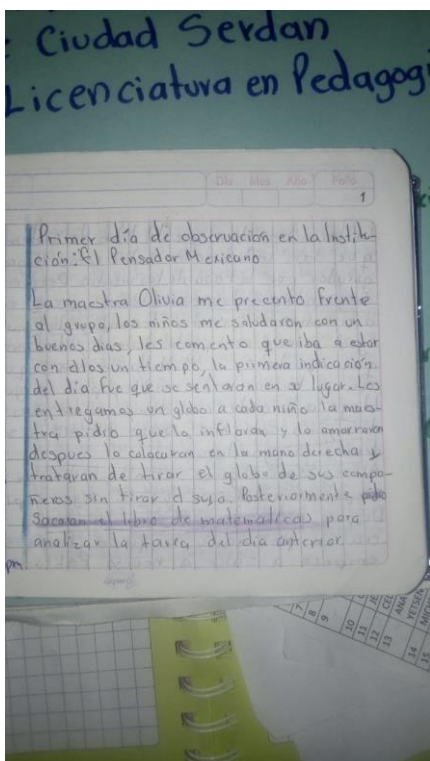 : Ciudad Serdan
Licenciatura en Pedagogi
Día Mes Año Folio
1
Primer día de observación en la Institu-
ción: El Pensador Mexicano
La maestra Olivia me precento frente
al grupo, los niños me saludaron con un
buenos dias, les comento que iba a estar
con ellos un tiempo, la primera indicación
del día fue que se sentaran en su lugar. Les
entregamos un globo a cada niño la maes-
tra pidio que lo inflaran y lo amarraran
despues lo colocaran en la mano derecha y
trataran de tirar el globo de sus compa-
ñeros sin tirar el suyo. Posteriormente pidio
Sacaran el libro de matematicas para
analizar la tarea del dia anterior.
pm
7
8
9
10
11
12
13
14
15
CEL
ANA
YETSEN